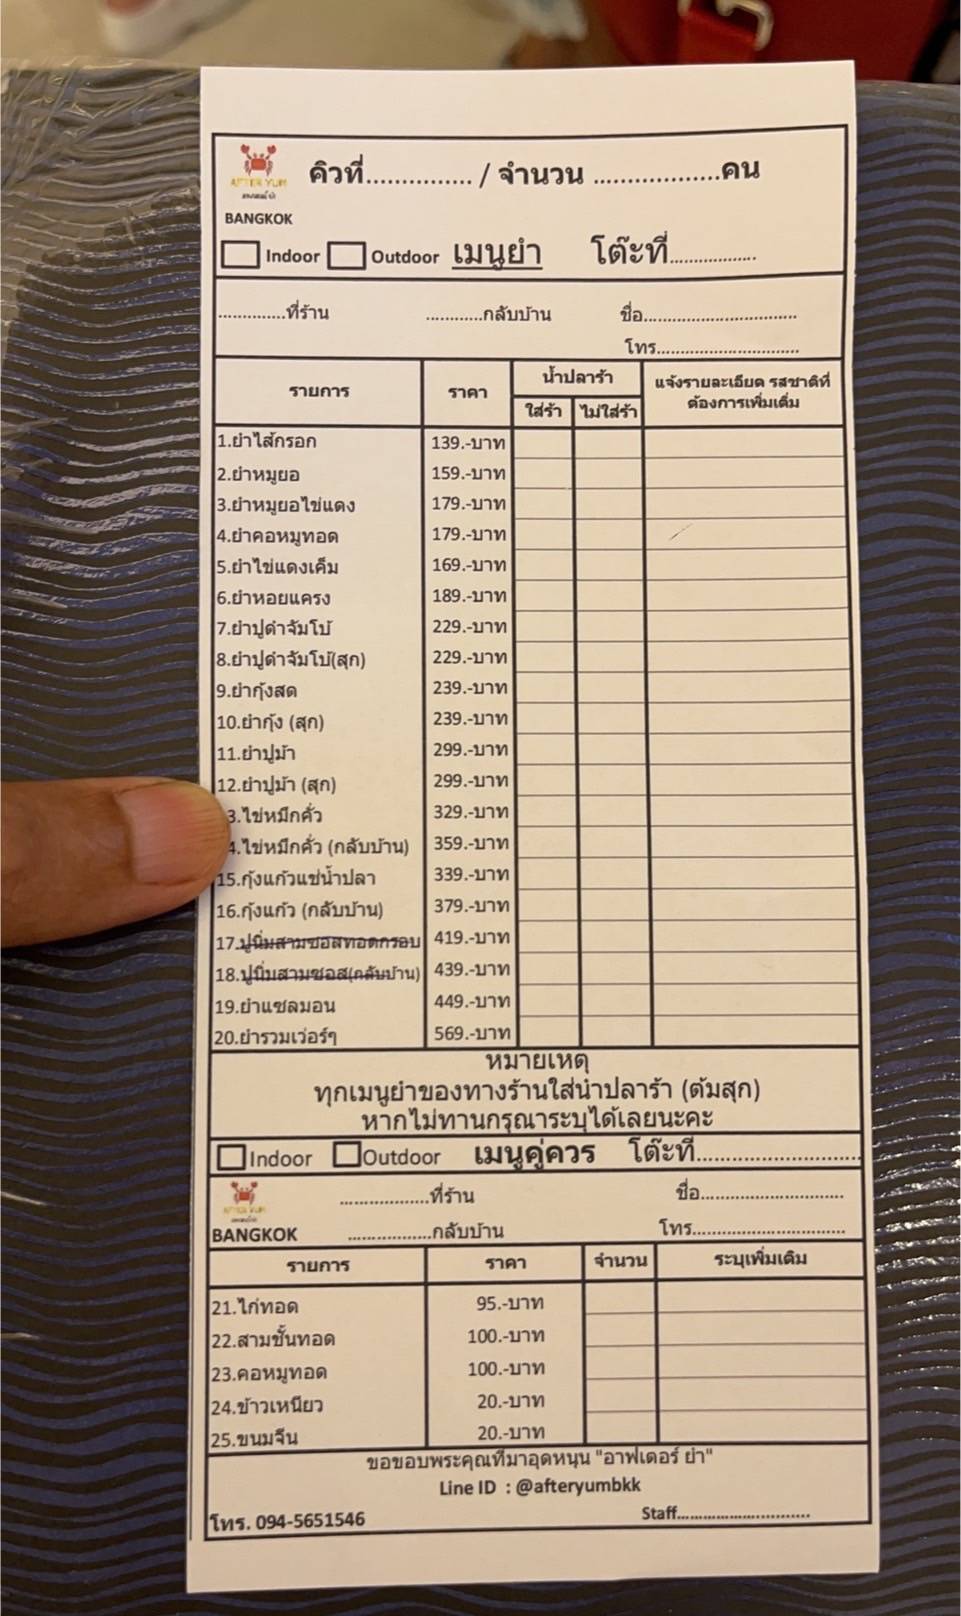 คิวที่.............. / จำนวน ..................คน
AFTER YUM
BANGKOK
Indoor Outdoor เมนูยำ โต๊ะที่..................
..............ที่ร้าน ............กลับบ้าน ชื่อ................................
โทร..............................
รายการ ราคา น้ำปลาร้า แจ้งรายละเอียด รสชาติที่
ใส่ร้า ไม่ใส่ร้า ต้องการเพิ่มเติ่ม
1.ยำไส้กรอก 139.-บาท
2.ยำหมูยอ 159.-บาท
3.ยำหมูยอไข่แดง 179.-บาท
4.ยำคอหมูทอด 179.-บาท
5.ยำไข่แดงเค็ม 169.-บาท
6.ยำหอยแครง 189.-บาท
7.ยำปูดำจัมโบ้ 229.-บาท
8.ยำปูดำจัมโบ้(สุก) 229.-บาท
9.ยำกุ้งสด 239.-บาท
10.ยำกุ้ง (สุก) 239.-บาท
11.ยำปูม้า 299.-บาท
12.ยำปูม้า (สุก) 299.-บาท
3.ไข่หมึกคั่ว 329.-บาท
4.ไข่หมึกคั่ว (กลับบ้าน) 359.-บาท
15.กุ้งแก้วแช่น้ำปลา 339.-บาท
16.กุ้งแก้ว (กลับบ้าน) 379.-บาท
17.ปูนิ่มสามซอสทอดกรอบ 419.-บาท
18.ปูนิ่มสามซอส(กลับบ้าน) 439.-บาท
19.ยำแซลมอน 449.-บาท
20.ยำรวมเว่อร์ๆ 569.-บาท
หมายเหตุ
ทุกเมนูยำของทางร้านใส่น้ำปลาร้า (ต้มสุก)
หากไม่ทานกรุณาระบุได้เลยนะคะ
Indoor Outdoor เมนูคู่ควร โต๊ะที่............................
..................ที่ร้าน ชื่อ..............................
BANGKOK .................กลับบ้าน โทร................................
รายการ ราคา จำนวน ระบุเพิ่มเติม
21.ไก่ทอด 95.-บาท
22.สามชั้นทอด 100.-บาท
23.คอหมูทอด 100.-บาท
24.ข้าวเหนียว 20.-บาท
25.ขนมจีน 20.-บาท
ขอขอบพระคุณที่มาอุดหนุน "อาฟเตอร์ ยำ"
Line ID : @afteryumbkk
โทร. 094-5651546 Staff............................